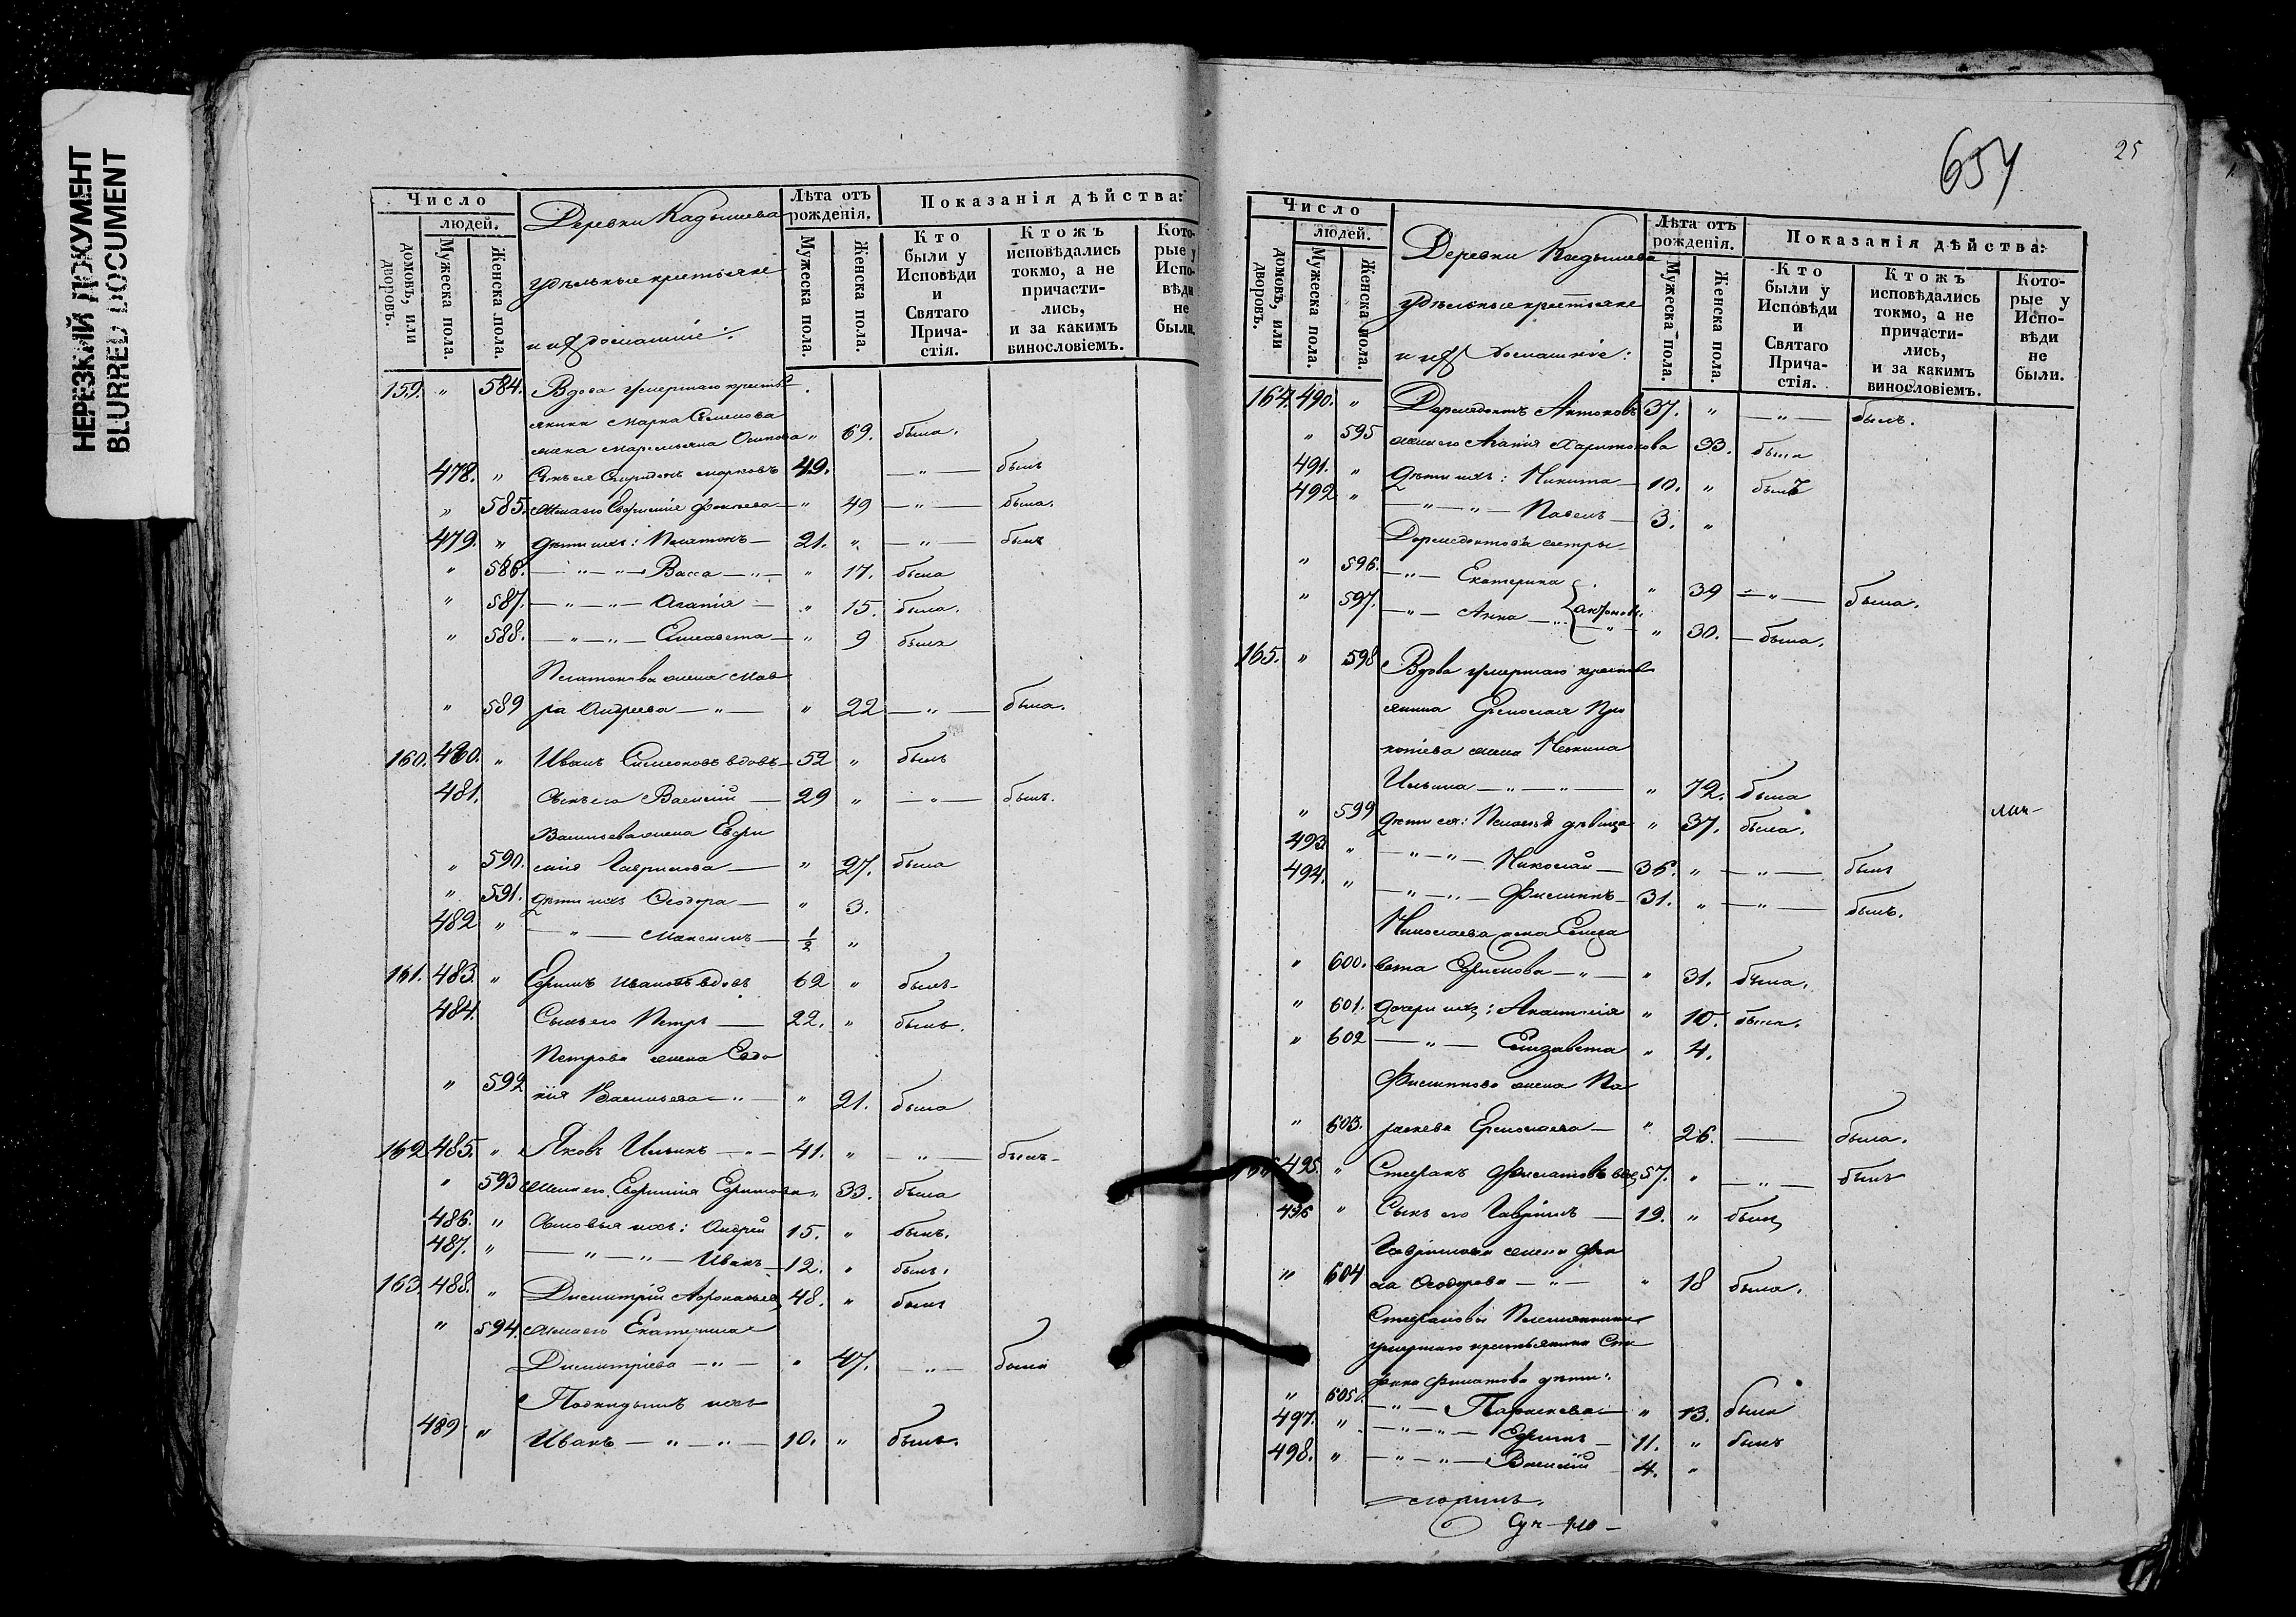 НЕРЕЗКИЙ ДОКУМЕНТ
BLURRED DOCUMENT
Число
людей.
домовъ, или дворовъ.
Мужеска пола.
Женска пола.
Деревни Кадышева
удѣльные крестьяне
и ихъ домашніе:
Лѣта отъ рожденія.
Мужеска пола.
Женска пола.
Показанія дѣйства:
Кто были у Исповѣди и Святаго Причастія.
Ктожъ исповѣдались токмо, а не причастились, и за какимъ винословіемъ.
Которые у Исповѣди не были.
159. " 584. Вдова умершаго кресть
янина Марка Семенова
жена Маремьяна Осипова " 69. была.
478. " Сынъ ея Спиридонъ Марковъ 49. — " — былъ
" 585. Жена его Евфимія " 49 — " — была.
479. " Дѣти ихъ: Платонъ — 21. " — " — былъ
" 586. — " — " — Васса — " — " 17. была
" 587. — " — " — Агапія — " 15. была.
" 588. — " — " — Елисавета — " 9 была
Платонова жена Мав
" 589 ра Андреева — " — " 22 — " — была.
160. 480. " Иванъ Симеоновъ вдовъ 52 " былъ
481. Сынъ его Василій — 29 " — " — былъ.
Васильева жена Евфи
" 590. мія Гаврилова — " 27. была
" 591. Дѣти ихъ Ѳеодора — " 3.
482 " — " — Максимъ — 1/2 "
161. 483. " Ефимъ Ивановъ вдовъ 62 " былъ
484. Сынъ его Петръ — 22. " былъ.
Петрова жена Евдо
" 592 кія Васильева — " — " 21. была
162 485. " Яковъ Ильинъ — " — 41. " — " — былъ
" 593 Жена его Евфимія Ефимова " 33. была
486. " Сыновья ихъ: Андрей 15. " былъ.
487. " — " — " — Иванъ — 12. " былъ.
163 488. " Димитрій 48. " былъ
" 594. Жена его Екатерина
Димитріева — " — " 47. — " — была
Подкидышъ ихъ
489 " Иванъ — " — " — 10. " былъ.
657
25
Число
людей.
домовъ, или дворовъ.
Мужеска пола.
Женска пола.
Деревни Кадышева
удѣльные крестьяне
и ихъ домашніе:
Лѣта отъ рожденія.
Мужеска пола.
Женска пола.
Показанія дѣйства:
Кто были у Исповѣди и Святаго Причастія.
Ктожъ исповѣдались токмо, а не причастились, и за какимъ винословіемъ.
Которые у Исповѣди не были.
164. 490. " Дормедонтъ Антоновъ 37. " — " — былъ.
" 595 жена его Агапія Харитонова 33. была
491. " Дѣти ихъ: Никита — 10. " былъ
492 " — " — " — Павелъ — 3. "
Дормедонтова сестры
" 596. — " — Екатерина " 39 — " — была.
" 597. — " — Анна — " Антонов. " 30. — была.
165. " 598 Вдова умершаго кресть
янина Ермолая Про
копіева жена
Ильина — " — " — " 72. была
" 599 Дѣти ея: дѣвица " 37. была.
493. " — " — " — Николай — 36. " — " — былъ
494. " — " — " — Филиппъ — 31. " — " — былъ.
Николаева жена Елиза
" 600. вета Ефимова — " — " 31. была.
" 601. Дочери ихъ: " 10. была.
" 602 — " — Елизавета " 4.
Филиппова жена Па
" 603. раскева Ермолаева — " 26. — была.
495. " Стефанъ Филатовъ вдов. 57. " — " — былъ
496 " Сынъ его Гавріилъ — 19. " былъ
Гавріилова жена Фек
" 604 ла Ѳеодорова — " — " 18 была.
Стефановы Племянники
умершаго крестьянина Сте
фана Филатова дѣти:
" 605. — " — Параскева — " 13. была
497. " — " — " — Ефимъ — 11. " былъ
498. " — " — " — Василій 4. "